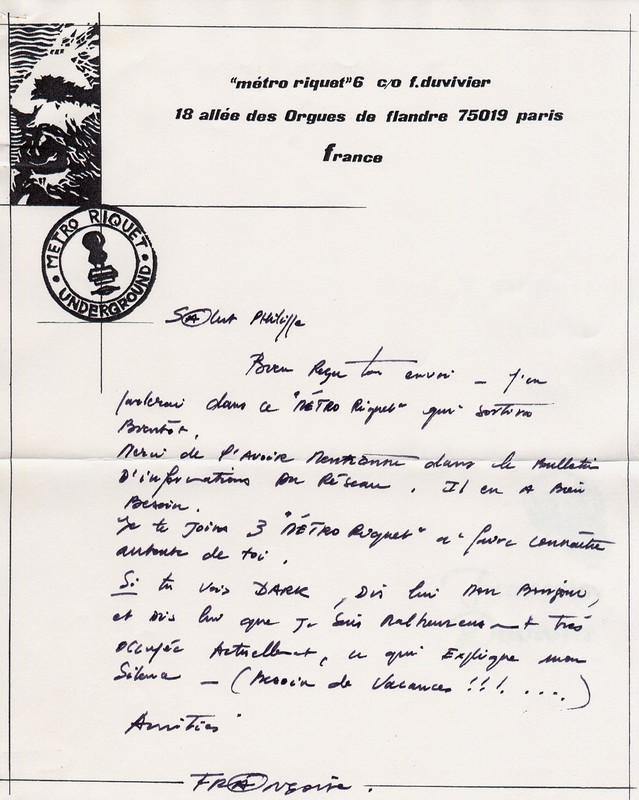 "métro riquet"6 c/o f.duvivier
18 allée des Orgues de flandre 75019 paris
france
METRO RIQUET
UNDERGROUND
SAlut Philippe
Bien Reçu ton envoi _ J'en
parlerai dans ce "MÉTRO Riquet" qui sortira
Bientôt.
Merci de l'Avoir Mentionné dans le Bulletin
D'informations Du Réseau. Il en A Bien
Besoin.
Je te Joins 3 "MÉTRO Riquet" a' faire connaître
autour de toi.
Si tu vois DARK, Dis lui Mon Bonjour,
et Dis lui que Je Suis Malheureusement très
occupée Actuellement, ce qui Explique mon
Silence _ (Besoin de Vacances !!!. ....)
Amitiés
FRAnçoise.